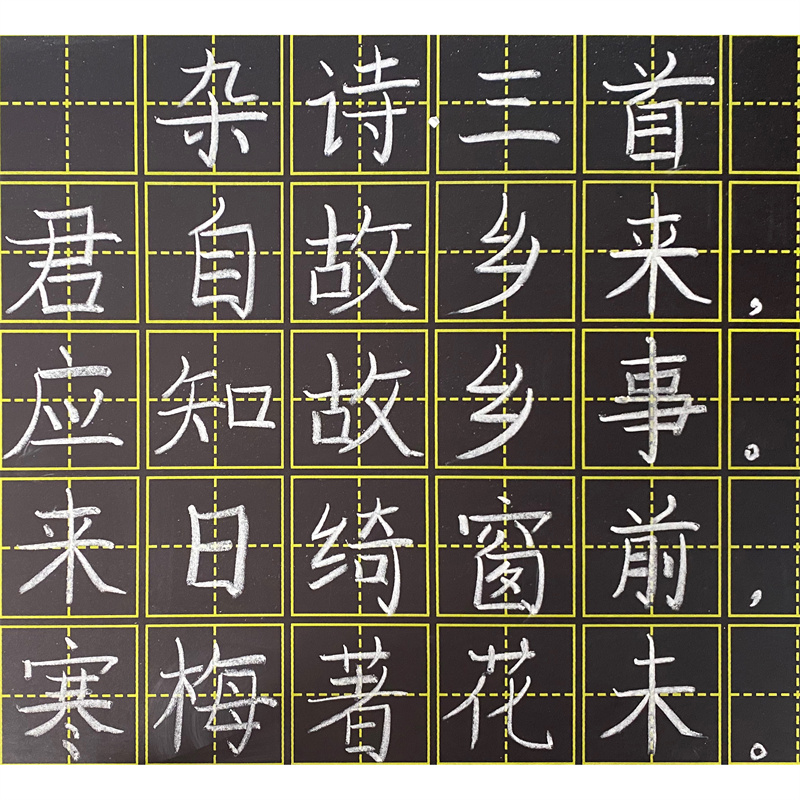 杂诗·三首
君自故乡来，
应知故乡事。
来日绮窗前，
寒梅著花未。